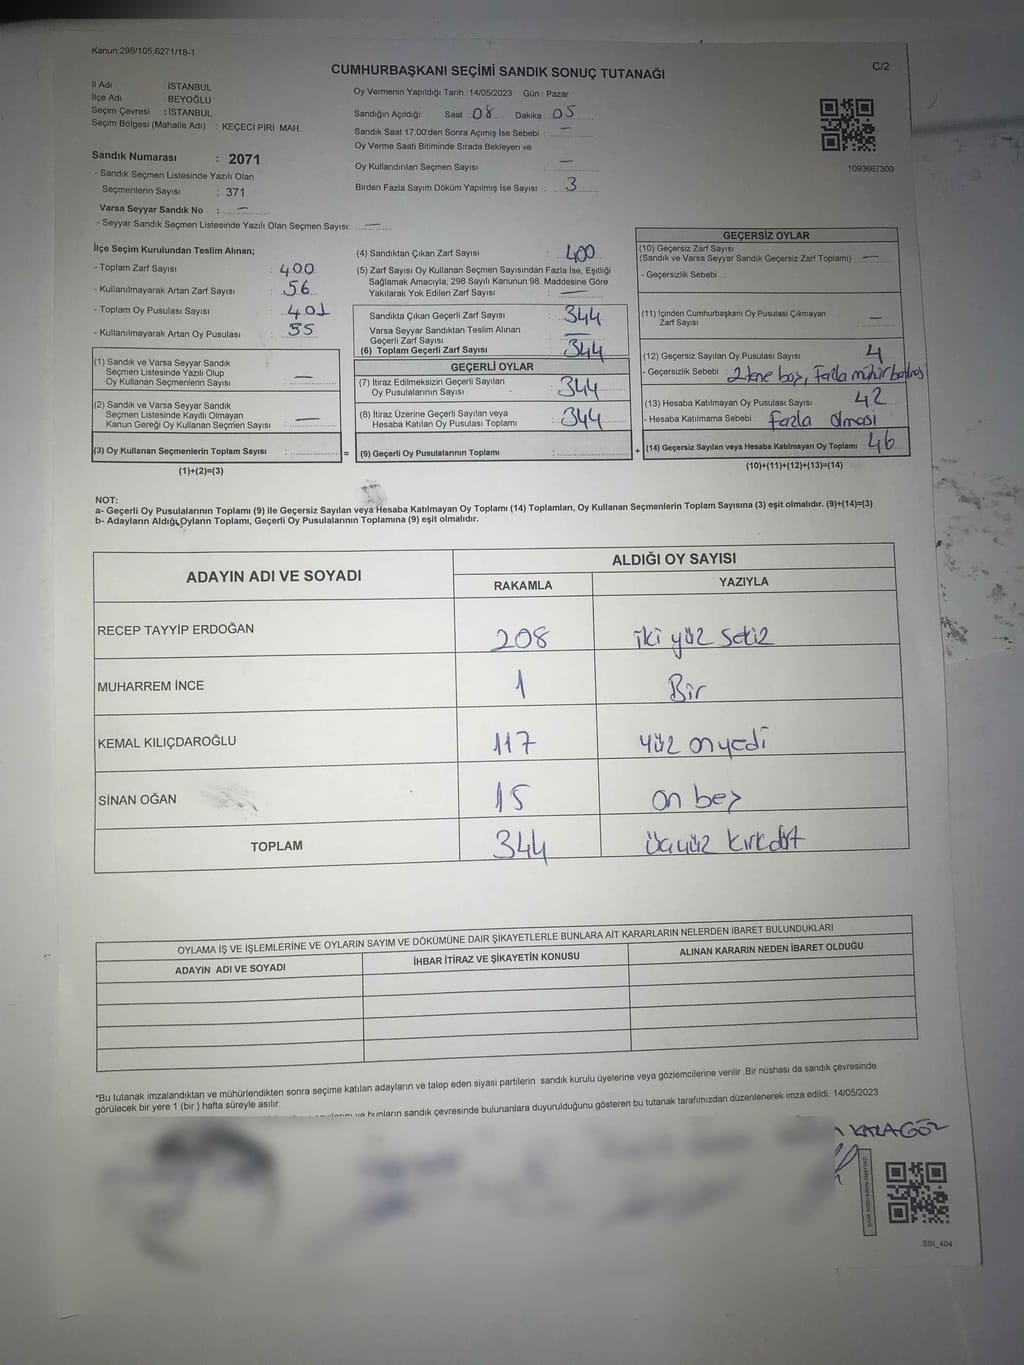 Kanun:298/105,6271/18-1
C/2
CUMHURBAŞKANI SEÇİMİ SANDIK SONUÇ TUTANAĞI
İl Adı : İSTANBUL
İlçe Adı : BEYOĞLU
Seçim Çevresi : İSTANBUL
Seçim Bölgesi (Mahalle Adı) : KEÇECİ PİRİ MAH.
Sandık Numarası : 2071
- Sandık Seçmen Listesinde Yazılı Olan
Seçmenlerin Sayısı : 371
Varsa Seyyar Sandık No : —
- Seyyar Sandık Seçmen Listesinde Yazılı Olan Seçmen Sayısı: —
Oy Vermenin Yapıldığı Tarih :14/05/2023 Gün : Pazar
Sandığın Açıldığı Saat : 08 Dakika : 05
Sandık Saat 17:00'den Sonra Açımış İse Sebebi : —
Oy Verme Saati Bitiminde Sırada Bekleyen ve
Oy Kullandırılan Seçmen Sayısı : —
Birden Fazla Sayım Döküm Yapılmış İse Sayısı : 3
1093667300
İlçe Seçim Kurulundan Teslim Alınan;
- Toplam Zarf Sayısı : 400
- Kullanılmayarak Artan Zarf Sayısı : 56
- Toplam Oy Pusulası Sayısı : 401
- Kullanılmayarak Artan Oy Pusulası : 55
(1) Sandık ve Varsa Seyyar Sandık
Seçmen Listesinde Yazılı Olup
Oy Kullanan Seçmenlerin Sayısı : —
(2) Sandık ve Varsa Seyyar Sandık
Seçmen Listesinde Kayıtlı Olmayan
Kanun Gereği Oy Kullanan Seçmen Sayısı : —
(3) Oy Kullanan Seçmenlerin Toplam Sayısı :
(1)+(2)=(3)
=
(4) Sandıktan Çıkan Zarf Sayısı : 400
(5) Zarf Sayısı Oy Kullanan Seçmen Sayısından Fazla İse, Eşitliği
Sağlamak Amacıyla; 298 Sayılı Kanunun 98. Maddesine Göre
Yakılarak Yok Edilen Zarf Sayısı : —
Sandıkta Çıkan Geçerli Zarf Sayısı : 344
Varsa Seyyar Sandıktan Teslim Alınan
Geçerli Zarf Sayısı : —
(6) Toplam Geçerli Zarf Sayısı : 344
GEÇERLİ OYLAR
(7) İtiraz Edilmeksizin Geçerli Sayılan
Oy Pusulalarının Sayısı : 344
(8) İtiraz Üzerine Geçerli Sayılan veya
Hesaba Katılan Oy Pusulası Toplamı : 344
(9) Geçerli Oy Pusulalarının Toplamı :
+
GEÇERSİZ OYLAR
(10) Geçersiz Zarf Sayısı
(Sandık ve Varsa Seyyar Sandık Geçersiz Zarf Toplamı) : —
- Geçersizlik Sebebi :
(11) İçinden Cumhurbaşkanı Oy Pusulası Çıkmayan
Zarf Sayısı : —
(12) Geçersiz Sayılan Oy Pusulası Sayısı : 4
- Geçersizlik Sebebi : 2 tane boş, Fazla mühür
(13) Hesaba Katılmayan Oy Pusulası Sayısı : 42
- Hesaba Katılmama Sebebi : Fazla olması
(14) Geçersiz Sayılan veya Hesaba Katılmayan Oy Toplamı : 46
(10)+(11)+(12)+(13)=(14)
NOT:
a- Geçerli Oy Pusulalarının Toplamı (9) ile Geçersiz Sayılan veya Hesaba Katılmayan Oy Toplamı (14) Toplamları, Oy Kullanan Seçmenlerin Toplam Sayısına (3) eşit olmalıdır. (9)+(14)=(3)
b- Adayların Aldığı Oyların Toplamı, Geçerli Oy Pusulalarının Toplamına (9) eşit olmalıdır.
ADAYIN ADI VE SOYADI ALDIĞI OY SAYISI
RAKAMLA YAZIYLA
RECEP TAYYİP ERDOĞAN 208 iki yüz sekiz
MUHARREM İNCE 1 Bir
KEMAL KILIÇDAROĞLU 117 yüz onyedi
SİNAN OĞAN 15 on beş
TOPLAM 344 üçyüz kırkdört
OYLAMA İŞ VE İŞLEMLERİNE VE OYLARIN SAYIM VE DÖKÜMÜNE DAİR ŞİKAYETLERLE BUNLARA AİT KARARLARIN NELERDEN İBARET BULUNDUKLARI
ADAYIN ADI VE SOYADI İHBAR İTİRAZ VE ŞİKAYETİN KONUSU ALINAN KARARIN NEDEN İBARET OLDUĞU
*Bu tutanak imzalandıktan ve mühürlendikten sonra seçime katılan adayların ve talep eden siyasi partilerin sandık kurulu üyelerine veya gözlemcilerine verilir .Bir nüshası da sandık çevresinde
görülecek bir yere 1 (bir ) hafta süreyle asılır.
ve bunların sandık çevresinde bulunanlara duyurulduğunu gösteren bu tutanak tarafımızdan düzenlenerek imza edildi. 14/05/2023
KARAGÖZ
SSI_404